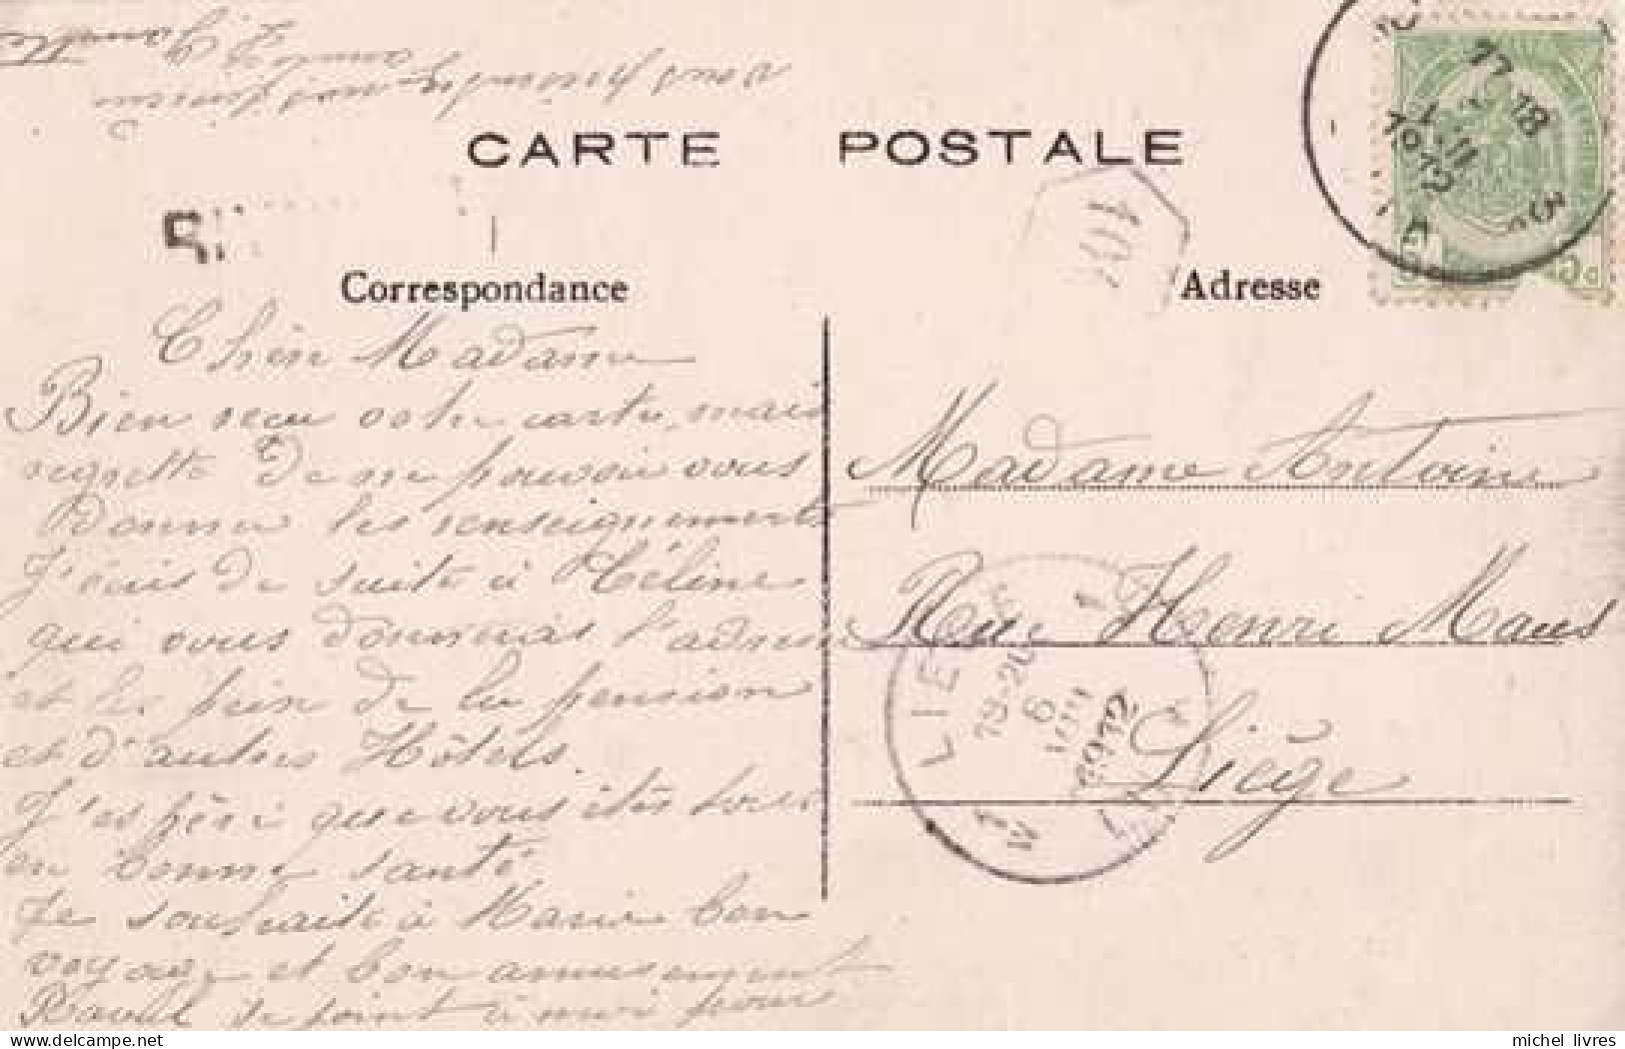 CARTE POSTALE
Correspondance
Adresse
Chère Madame
Bien reçu votre carte, mais
regrette de ne pouvoir vous
donner les renseignements
J'écris de suite à Céline
qui vous donnerais l'adresse
et le prix de la pension
et d'autres Hôtels.
J'espère que vous êtes tous
en bonne santé
Je souhaite à Marie bon
voyage et bon amusement
de point à moi pour
vous
Madame Antoine
Rue Henri Maus
Liège
407
18
VIII
1912
LIEGE 1
18-20
6
VIII
1912
michel livres